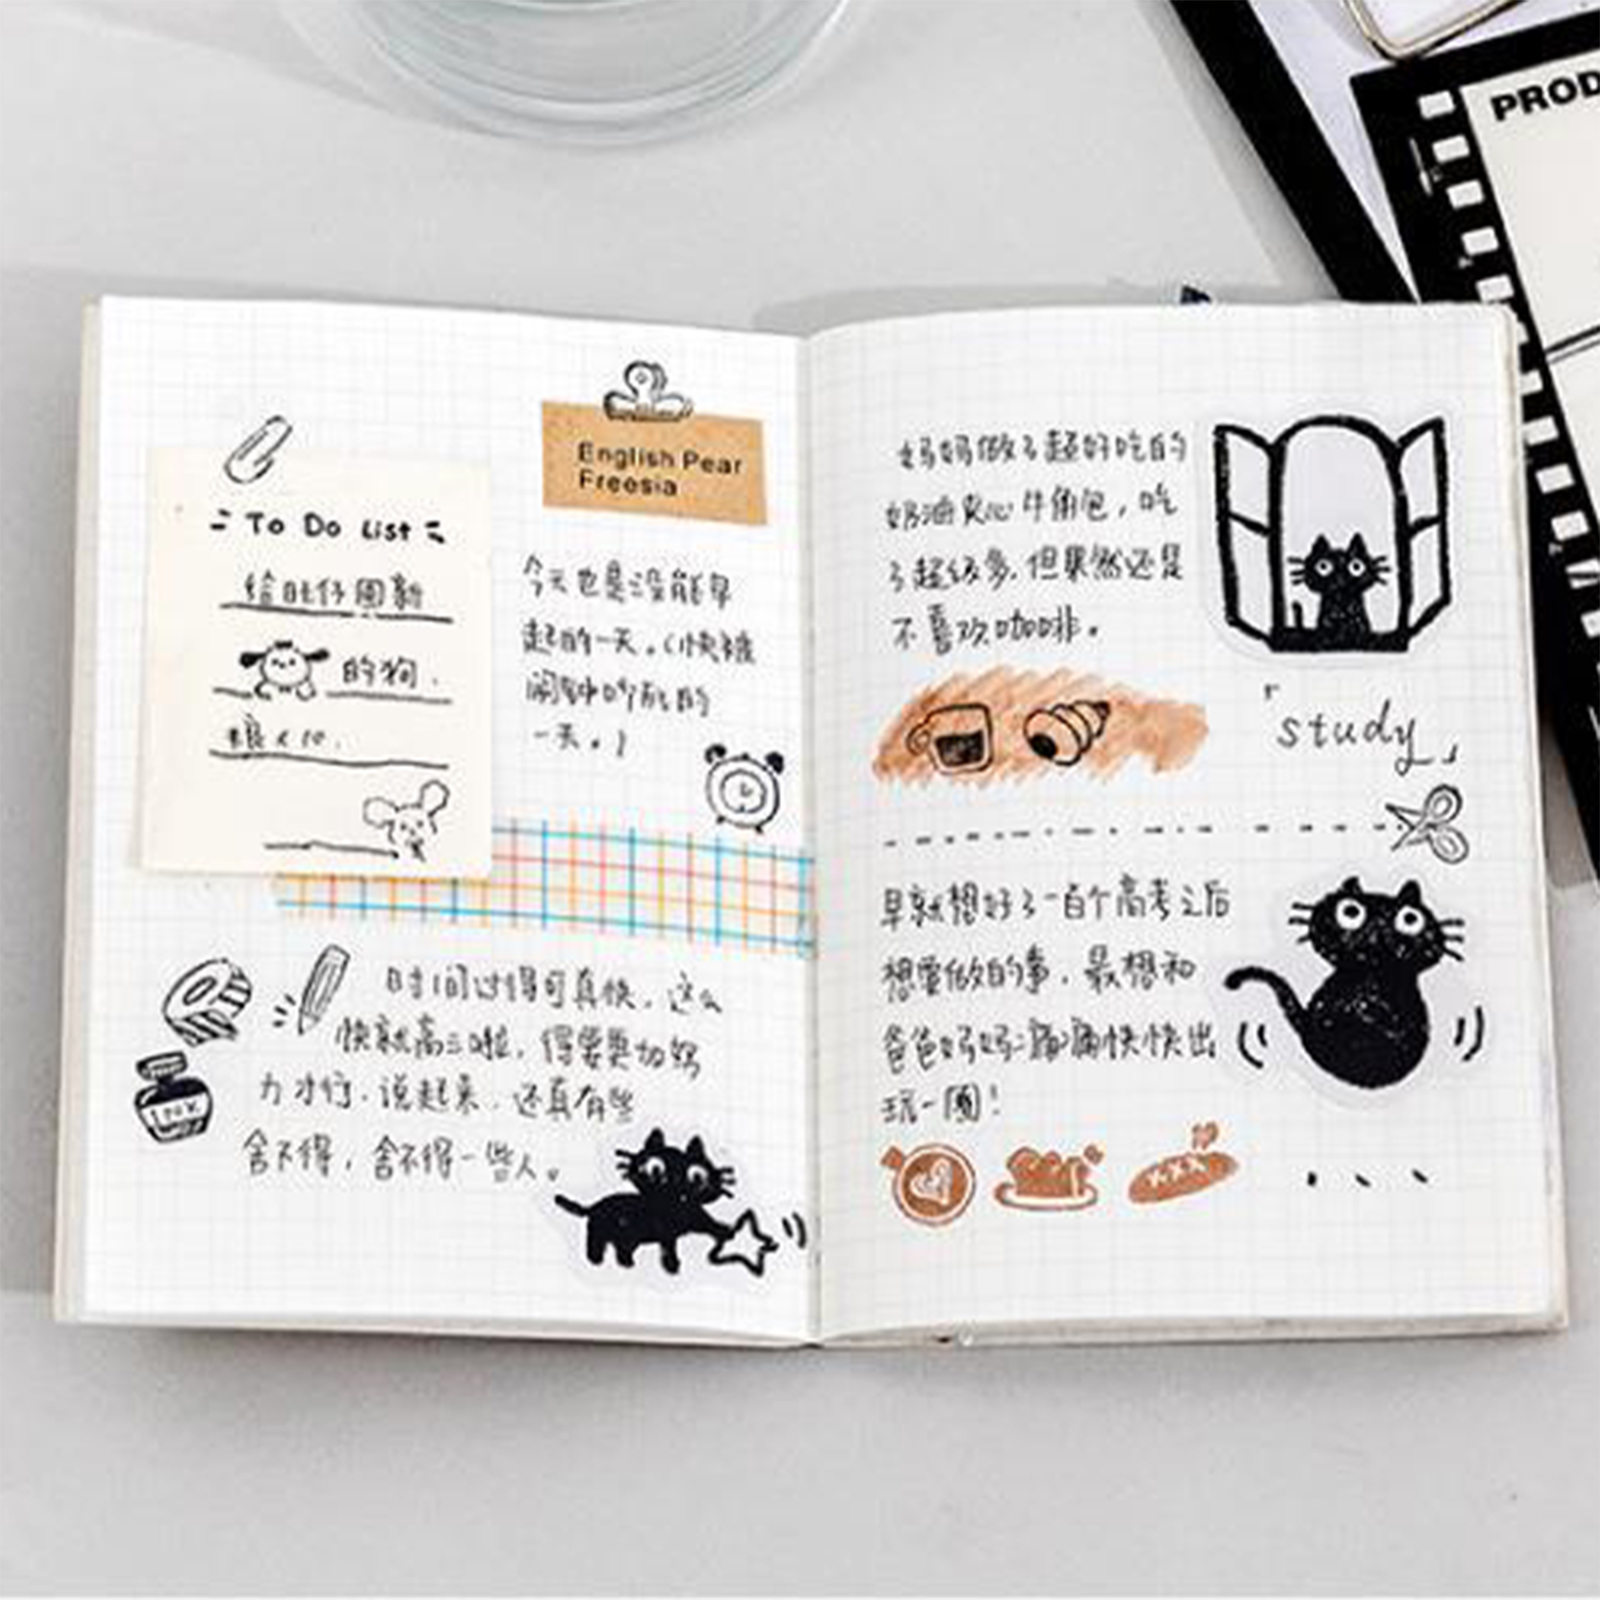 PROD
English Pear
Freesia
To Do List
给旺仔囤新
的狗
粮×10.
今天也是没能早
起的一天。(快被
闹钟吵死的
一天。)
时间过得可真快，这么
快就高三啦，得要更加努
力才行，说起来，还真有些
舍不得，舍不得一些人。
INK
妈妈做了超好吃的
奶油夹心牛角包，吃
了超级多，但果然还是
不喜欢咖啡。
「study」
早就想好了一百个高考之后
想要做的事，最想和
爸爸妈妈痛痛快快出
玩一圈！